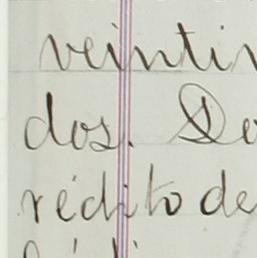 veintin
dos. Do
rédito de